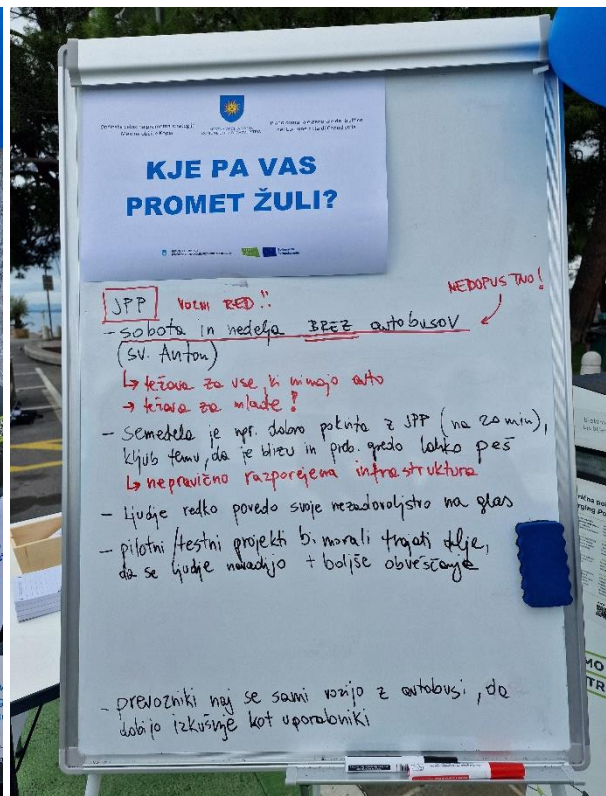 KJE PA VAS
PROMET ŽULI?
JPP VOZNI RED!!
NEDOPUSTNO!
- sobota in nedelja BREZ avtobusov
(SV. Anton)
↳ težava za vse, ki nimajo avto
→ težava za mlade!
- Semedela je npr. dobro pokrita z JPP (na 20 min),
kljub temu, da je blizu in preb. gredo lahko peš
↳ nepravično razporejena infrastruktura
- Ljudje redko povedo svoje nezadovoljstvo na glas
- pilotni/testni projekti bi morali trajati dlje,
da se ljudje navadijo + boljše obveščanje
- prevozniki naj se sami vozijo z avtobusi, da
dobijo izkušnje kot uporabniki